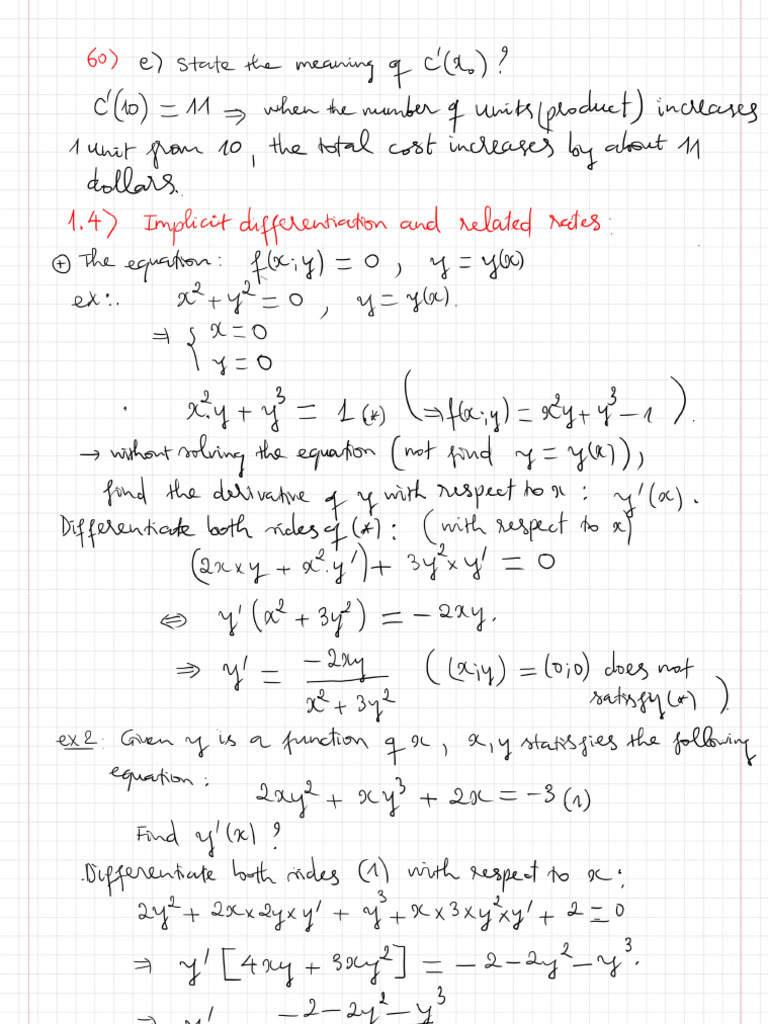 60) e) State the meaning of C'(x₀) ?
C'(10) = 11 ⇒ when the number of units (product) increases
1 unit from 10, the total cost increases by about 11
dollars.
1.4) Implicit differentiation and related rates:
⊕ The equation: f(x;y) = 0 , y = y(x)
ex:. x² + y² = 0 , y = y(x).
⇒ { x = 0
y = 0
. x².y + y³ = 1 (*) (⇒ f(x;y) = x²y + y³ - 1 ).
→ without solving the equation (not find y = y(x)),
find the derivative of y with respect to x : y'(x).
Differentiate both sides of (*): (with respect to x)
(2x × y + x².y') + 3y² × y' = 0
⇔ y' (x² + 3y²) = - 2xy.
⇒ y' = -2xy / (x² + 3y²) ( (x;y) = (0;0) does not
satisfy (*) ).
ex2: Given y is a function of x, x, y statisfies the following
equation: 2xy² + xy³ + 2x = -3 (1)
Find y'(x) ?
.Differentiate both sides (1) with respect to x:
2y² + 2x × 2y × y' + y³ + x × 3 × y² × y' + 2 = 0
⇒ y' [4xy + 3xy²] = -2 - 2y² - y³.
⇒ y' -2 - 2y² - y³